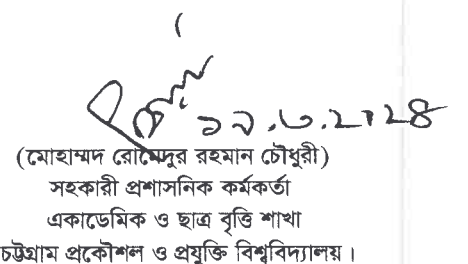 (মোহাম্মদ রোমেদুর রহমান চৌধুরী)
সহকারী প্রশাসনিক কর্মকর্তা
একাডেমিক ও ছাত্র বৃত্তি শাখা
চট্টগ্রাম প্রকৌশল ও প্রযুক্তি বিশ্ববিদ্যালয়।